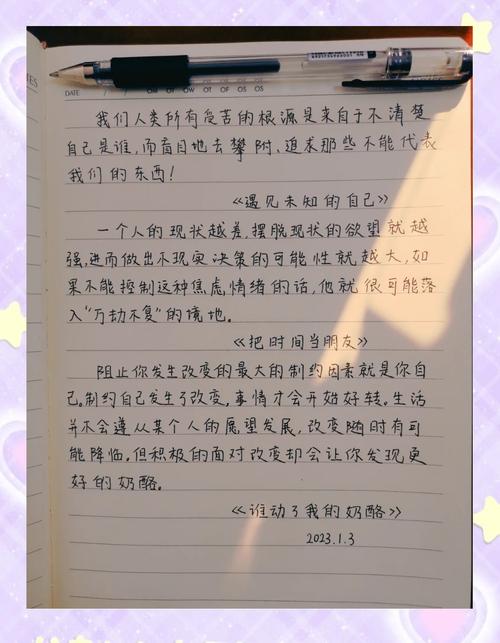 TES
DATE / /
我们人类所有受苦的根源是来自于不清楚
自己是谁,而盲目地去攀附、追求那些不能代表
我们的东西!
《遇见未知的自己》
一个人的现状越差,摆脱现状的欲望就越
强,进而做出不现实决策的可能性就越大,如
果不能控制这种焦虑情绪的话,他就很可能落
入“万劫不复”的境地。
《把时间当朋友》
阻止你发生改变的最大的制约因素就是你自
己。制约自己发生了改变,事情才会开始好转。生活
并不会遵从某个人的愿望发展,改变随时有可
能降临。但积极的面对改变却会让你发现更
好的奶酪。
《谁动了我的奶酪》
2023.1.3